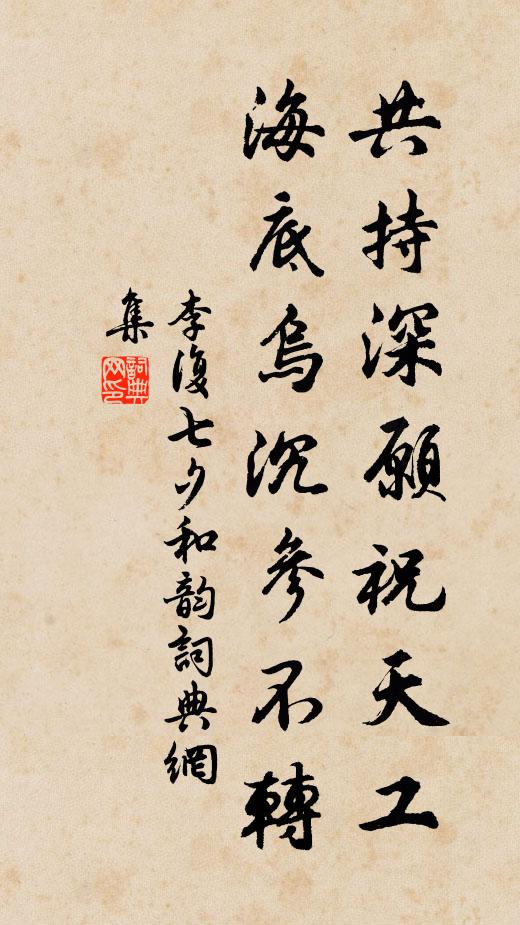 共持深願祝天工
海底烏沉參不轉
李復七夕和韵詞典網
集
詞典网印